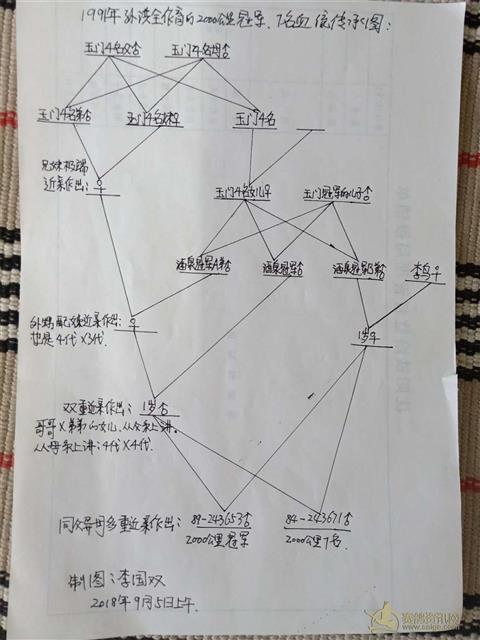 1991年外洪全作育的2000公里冠军、7名血统传承图:
玉门4名父♂ 玉门4名母♀
玉门4名弟♂ 玉门4名妹♀ 玉门4名
兄妹极端
近亲作出: ♀
玉门4名女儿♀ 玉门冠军的儿子♂
酒泉冠军A弟♂ 酒泉冠军♂ 酒泉冠军B弟♂ 李鸟♀
外甥配姨近亲作出: ♀
也是4代X3代.
1岁♀
双重近亲作出: 1岁♂
哥哥X弟弟的女儿,从父系上讲。
从母系上讲:4代X4代.
同父异母多重近亲作出: 89-243653♂ 84-243671♂
2000公里冠军 2000公里7名.
制图:李国双
2018年9月5日上午.
赛鸽资讯网
www.saige.com